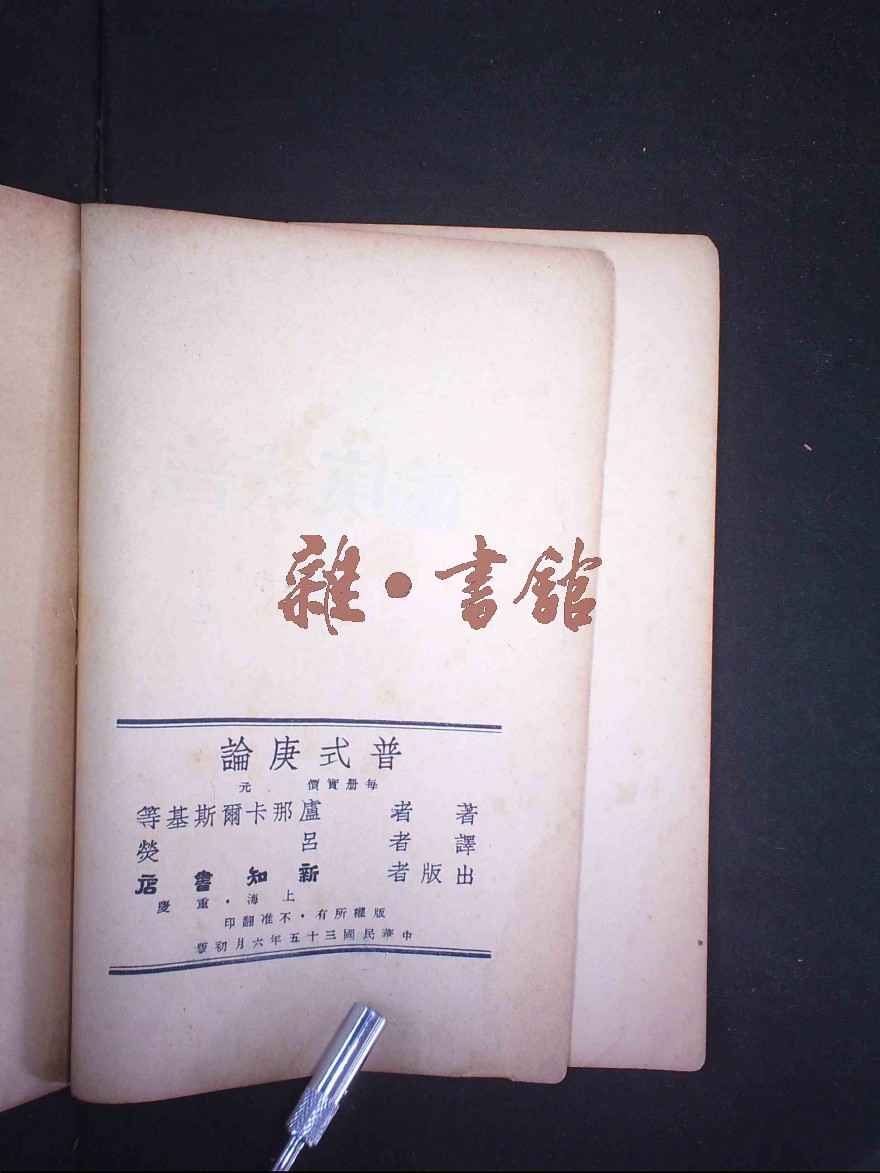 雜·書館
普式庚論
每冊實價　元
著者　盧那卡爾斯基等
譯者　呂熒
出版者　新知書店
上海·重慶
版權所有·不准翻印
中華民國三十五年六月初版